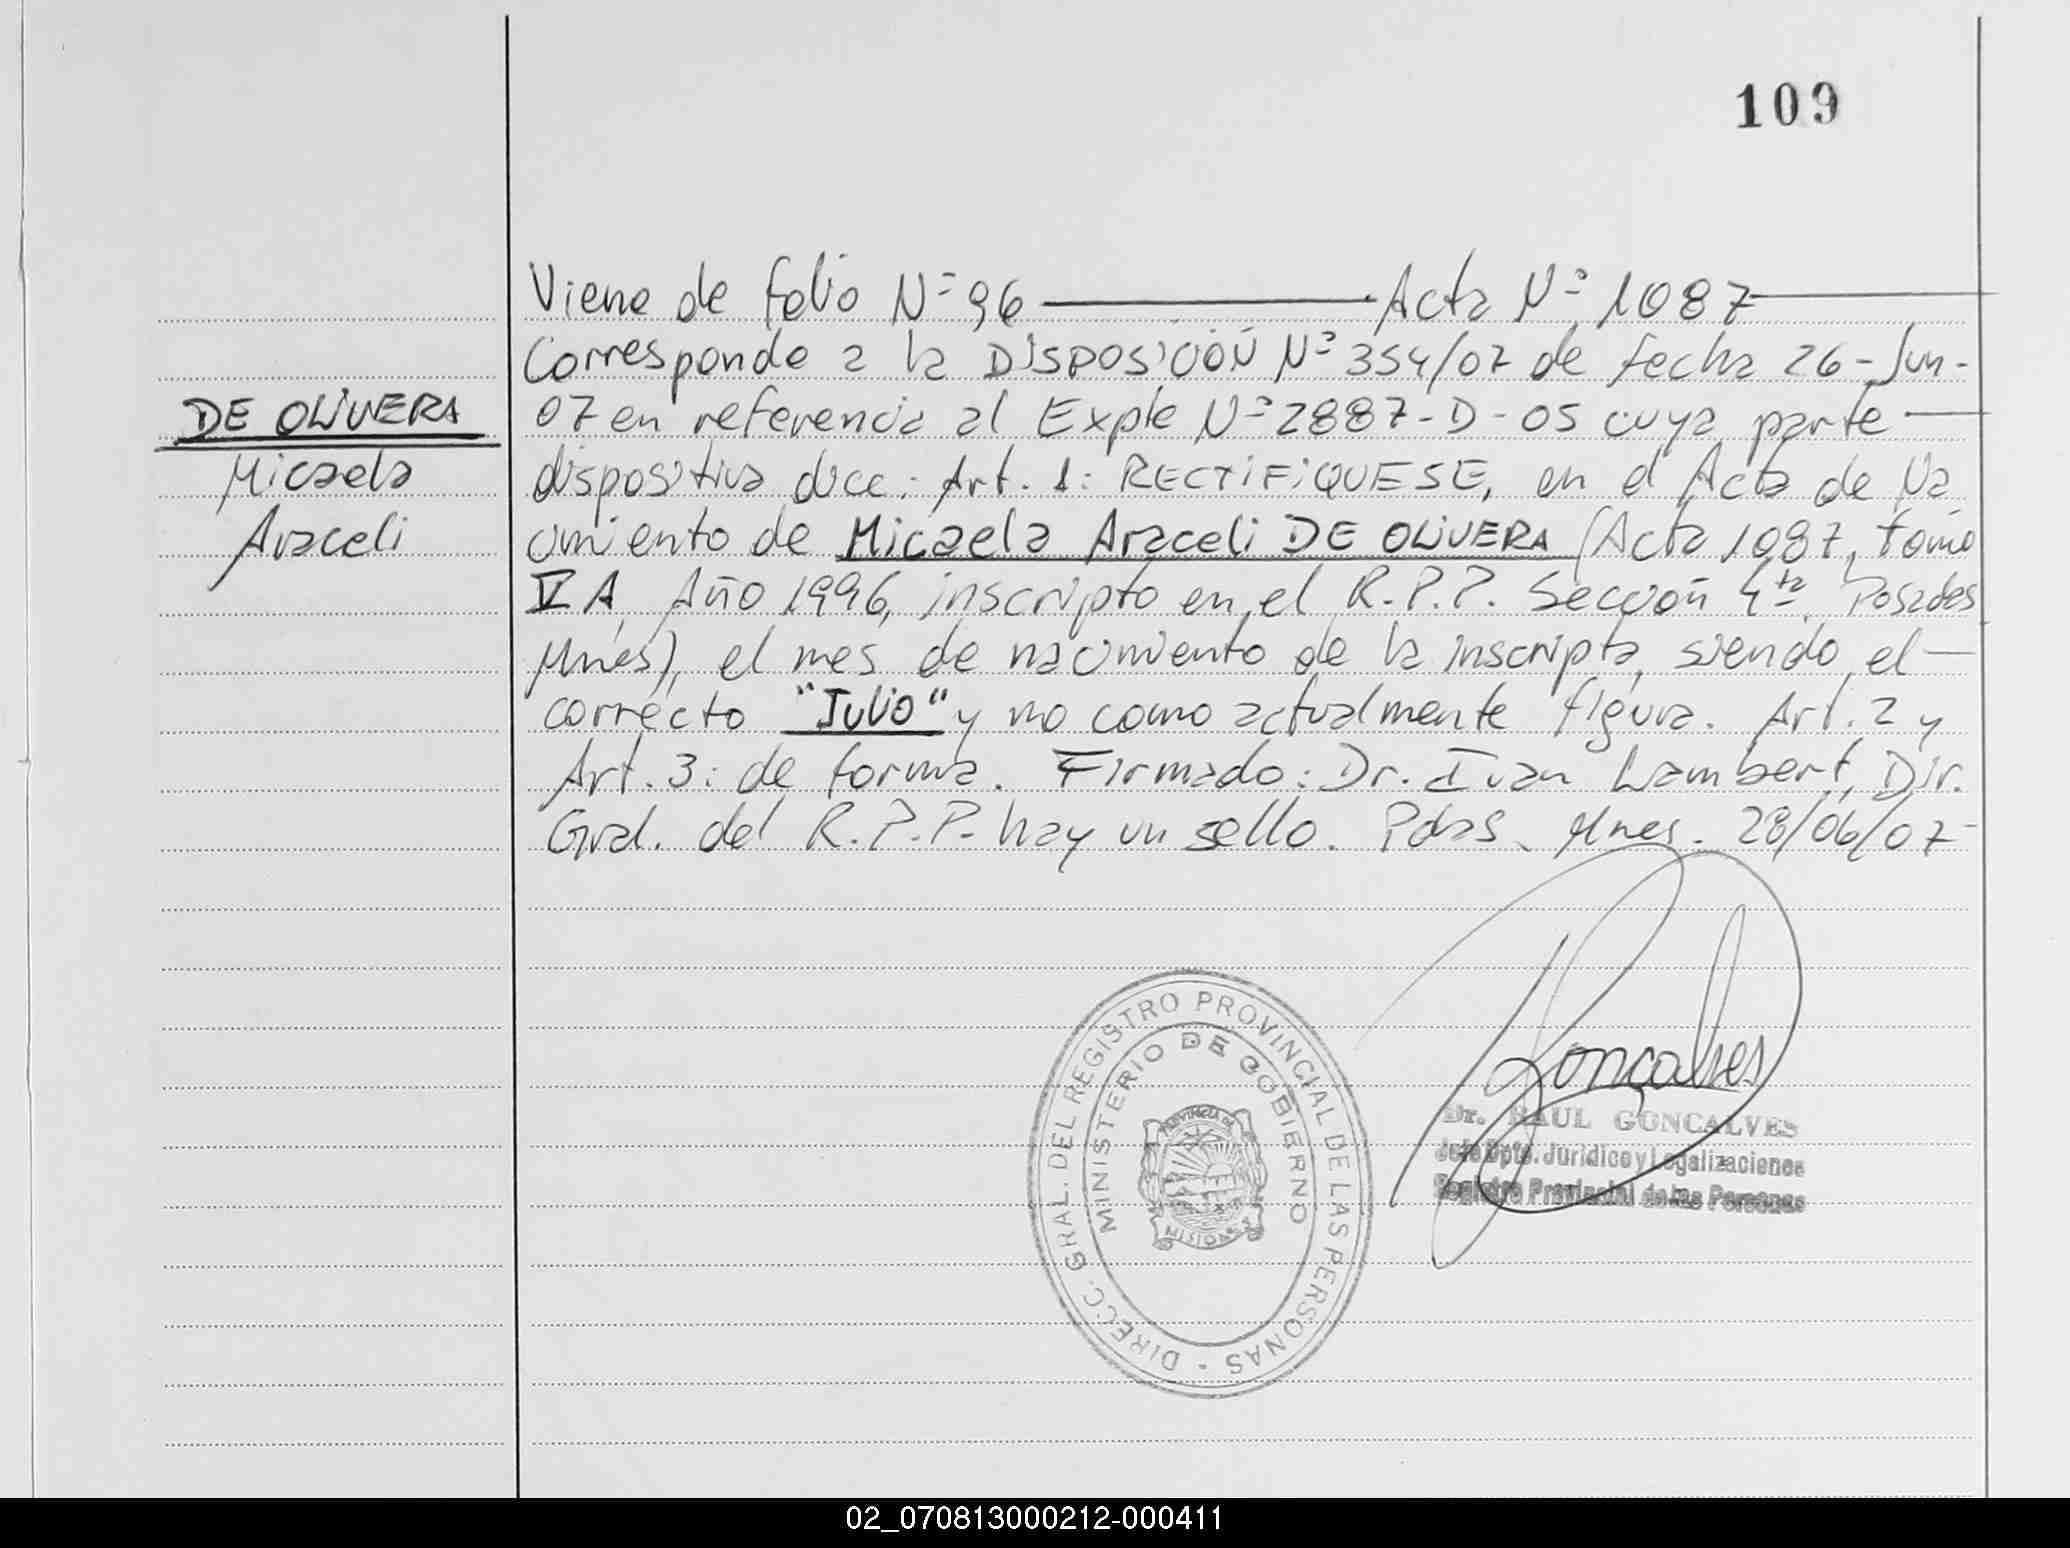 109
Viene de folio Nº 96 ——— Acta Nº 1087 ———
Corresponde a la DISPOSICIÓN Nº 354/07 de fecha 26-Jun-
DE OLIVERA
07 en referencia al Expte Nº 2887-D-05 cuya parte —
Micaela
dispositiva dice: Art. 1: RECTIFIQUESE, en el Acta de Na
Araceli
cimiento de Micaela Araceli DE OLIVERA (Acta 1087, tomo
V A, Año 1996, inscripto en el R.P.P. Sección 4ta Posadas
Mnes), el mes de nacimiento de la inscripta, siendo el —
correcto "Julio" y no como actualmente figura. Art. 2 y
Art. 3: de forma. Firmado: Dr. Ivan Lambert, Dir.
Gral. del R.P.P. hay un sello. Pdas. Mnes. 28/06/07-
DIRECC. GRAL. DEL REGISTRO PROVINCIAL DE LAS PERSONAS -
MINISTERIO DE GOBIERNO
PROVINCIA DE
MISIONES
Goncalves
Dr. RAUL GONCALVES
Jefe Dpto. Jurídico y Legalizaciones
Registro Provincial de las Personas
02_070813000212-000411